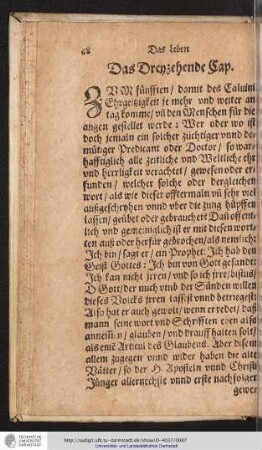 68 Das Leben
Das Dreyzehende Cap.
ZUM fünfften / damit des Caluini
Ehrgeitzigkeit je mehr vnd weiter an
tag komme / vn̄ den Menschen für die
augen gestellet werde: Wer oder wo ist
doch jemaln ein solcher züchtiger vnnd de-
mütiger Predicant oder Doctor / so war-
haffniglich alle zeitliche vnd Weltliche ehr
vnd herrligkeit verachtet / gewesen oder er-
funden / welcher solche oder dergleichen
wort / als wie dieser offtermaln vn̄ sehr viel
außgeschryhen vnnd vber die zung hüpffen
lassen / geübet oder gebrauchet? Dañ öffent-
lich vnd gemeiniglich ist er mit diesen wor-
ten auß oder herfür gebrochen / als nemlich:
Ich bin / sagt er / ein Prophet: Ich hab den
Geist Gottes: Ich bin von Gott gesandt:
Ich kan nicht jrren / vnd so ich jrre / bistus /
O Gott / der mich vmb der Sünden willen
dieses Volcks jrren lassest vnnd betriegest.
Also hat er auch gewolt / wenn er redet / daß
mann seine wort vnd Schrifften eben also
annemen / glauben / vnd drauff halten solt /
als eine Articul des Glaubens. Aber disem
allem zugegen vnnd wider haben die alte
Vätter / so der H. Aposteln vnnd Christi
Jünger allernechste vnnd erste nachfolger
gewes
http://tudigit.ulb.tu-darmstadt.de/show/G-4037/0087
Universitäts- und Landesbibliothek Darmstadt